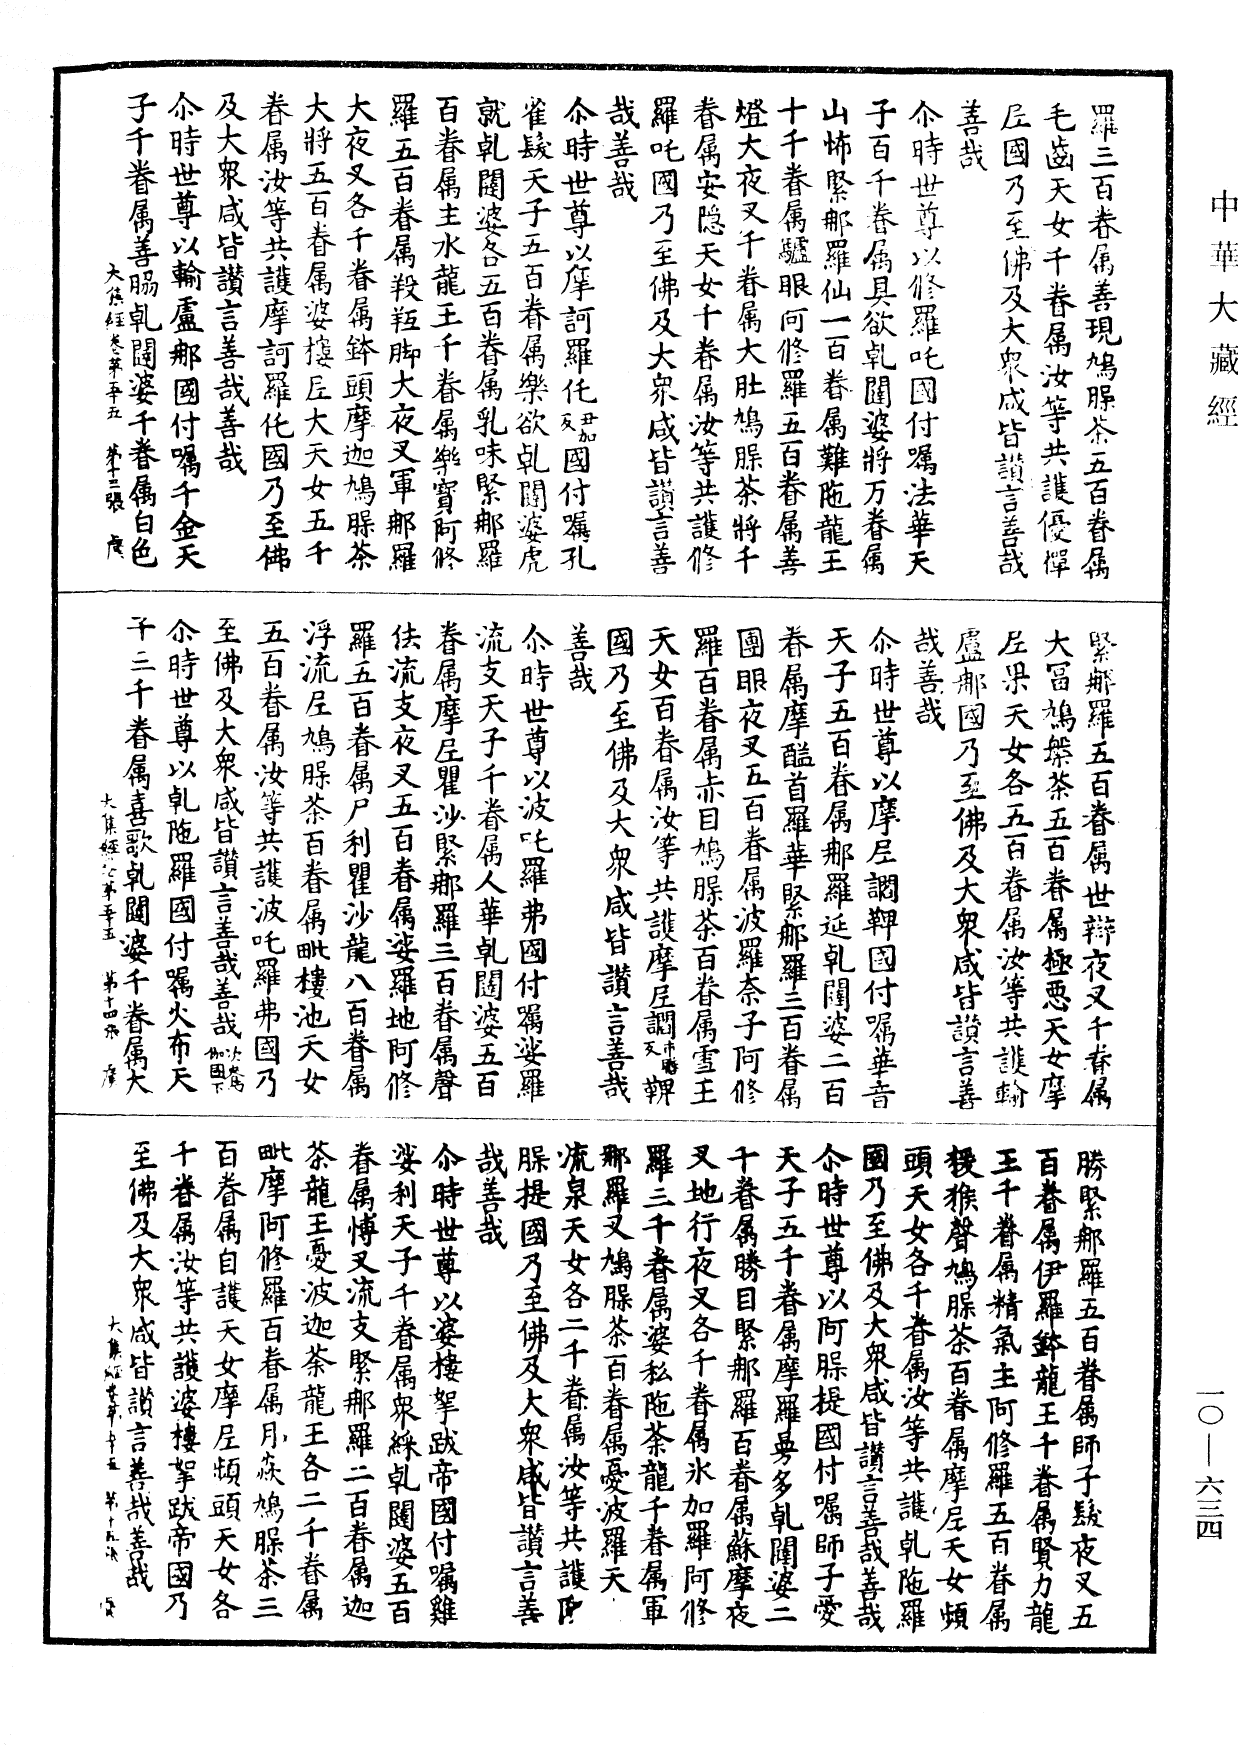 中華大藏經
羅三百眷属善現鳩䐗茶五百眷属
毛齒天女千眷属汝等共護優禪
尼國乃至佛及大衆咸皆讃言善哉
善哉
尒時世尊以修羅吒國付嘱法華天
子百千眷属具欲乹闥婆將万眷属
山怖緊那羅仙一百眷属難陁龍王
十千眷属驢眼阿修羅五百眷属善
燈大夜叉千眷属大肚鳩䐗茶將千
眷属安隐天女千眷属汝等共護修
羅吒國乃至佛及大衆咸皆讃言善
哉善哉
尒時世尊以摩訶羅仛尹加反國付嘱孔
雀髮天子五百眷属樂欲乹闥婆虎
就乹闥婆各五百眷属乳味緊那羅
百眷属主水龍王千眷属樂寶阿修
羅五百眷属羖羝脚大夜叉軍那羅
大夜叉各千眷属鉢頭摩迦鳩䐗茶
大將五百眷属婆樓尼大天女五千
眷属汝等共護摩訶羅仛國乃至佛
及大衆咸皆讃言善哉善哉
尒時世尊以輸盧那國付嘱千金天
子千眷属善脇乹闥婆千眷属白色
大集經卷第五十五　第十三張　虞
緊那羅五百眷属世辯夜叉千眷属
大冨鳩槃茶五百眷属極惡天女摩
尼果天女各五百眷属汝等共護輸
盧那國乃至佛及大衆咸皆讃言善
哉善哉
尒時世尊以摩尼讇鞞國付嘱華音
天子五百眷属那羅延乹闥婆二百
眷属摩醯首羅華緊那羅三百眷属
團眼夜叉五百眷属波羅奈子阿修
羅百眷属赤目鳩䐗茶百眷属雪王
天女百眷属汝等共護摩尼讇反鞞
國乃至佛及大衆咸皆讃言善哉
善哉
尒時世尊以波吒羅弗國付嘱娑羅
流支天子千眷属人華乹闥婆五百
眷属摩尼瞿沙緊那羅三百眷属聲
佉流支夜叉五百眷属娑羅地阿修
羅五百眷属尸利瞿沙龍八百眷属
浮流尼鳩䐗茶百眷属毗樓池天女
五百眷属汝等共護波吒羅弗國乃
至佛及大衆咸皆讃言善哉善哉
尒時世尊以乹陁羅國付嘱火布天
子二千眷属喜歌乹闥婆千眷属大
大集經卷第五十五　第十四張　虞
勝緊那羅五百眷属師子髮夜叉五
百眷属伊羅鉢龍王千眷属賢力龍
王千眷属精氣主阿修羅五百眷属
猨猴聲鳩䐗茶百眷属摩尼天女頻
頭天女各千眷属汝等共護乹陁羅
國乃至佛及大衆咸皆讃言善哉善哉
尒時世尊以阿䐗提國付嘱師子愛
天子五千眷属摩羅曼多乹闥婆二
千眷属勝目緊那羅百眷属蘇摩夜
叉地行夜叉各千眷属氷加羅阿修
羅三千眷属婆私陁茶龍千眷属軍
那羅叉鳩䐗茶百眷属憂波羅天
流泉天女各二千眷属汝等共護阿
䐗提國乃至佛及大衆咸皆讃言善
哉善哉
尒時世尊以婆樓挐跋帝國付嘱雞
娑利天子千眷属衆綵乹闥婆五百
眷属博叉流支緊那羅二百眷属迦
茶龍王憂波迦茶龍王各二千眷属
毗摩阿修羅百眷属月焱鳩䐗茶三
百眷属自護天女摩尼頻頭天女各
千眷属汝等共護婆樓挐跋帝國乃
至佛及大衆咸皆讃言善哉善哉
大集經卷第五十五　第十五張　虞
一〇—六三四